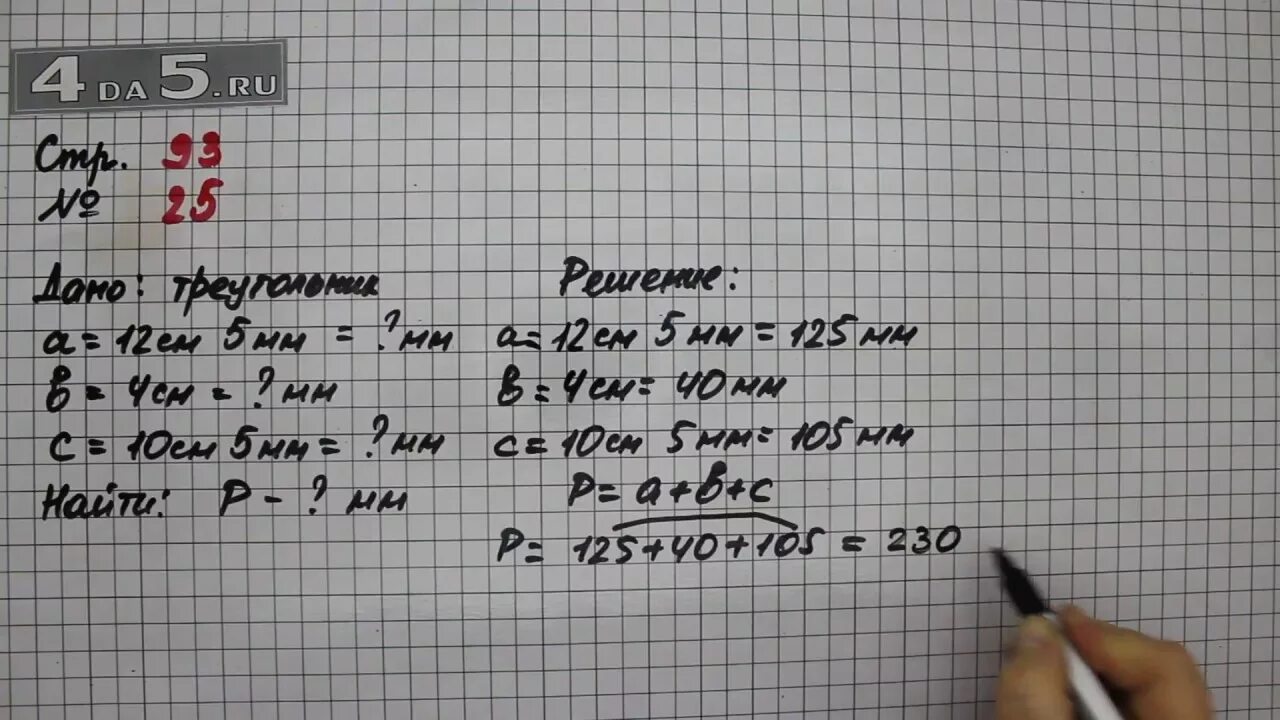 4DA5.RU
Стр. 93
№ 25
Дано: треугольник
a = 12см 5мм = ? мм
в = 4см = ? мм
с = 10см 5мм = ? мм
Найти: P - ? мм
Решение:
a = 12см 5мм = 125мм
в = 4см = 40мм
с = 10см 5мм = 105мм
P = a+в+с
P = 125+40+105 = 230